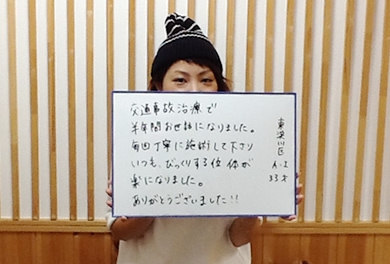 交通事故治療で
半年間お世話になりました。
毎回丁寧に施術して下さり
いつも、びっくりする位 体が
楽になりました。
ありがとうございました!!
東淀川区
A・I
33才